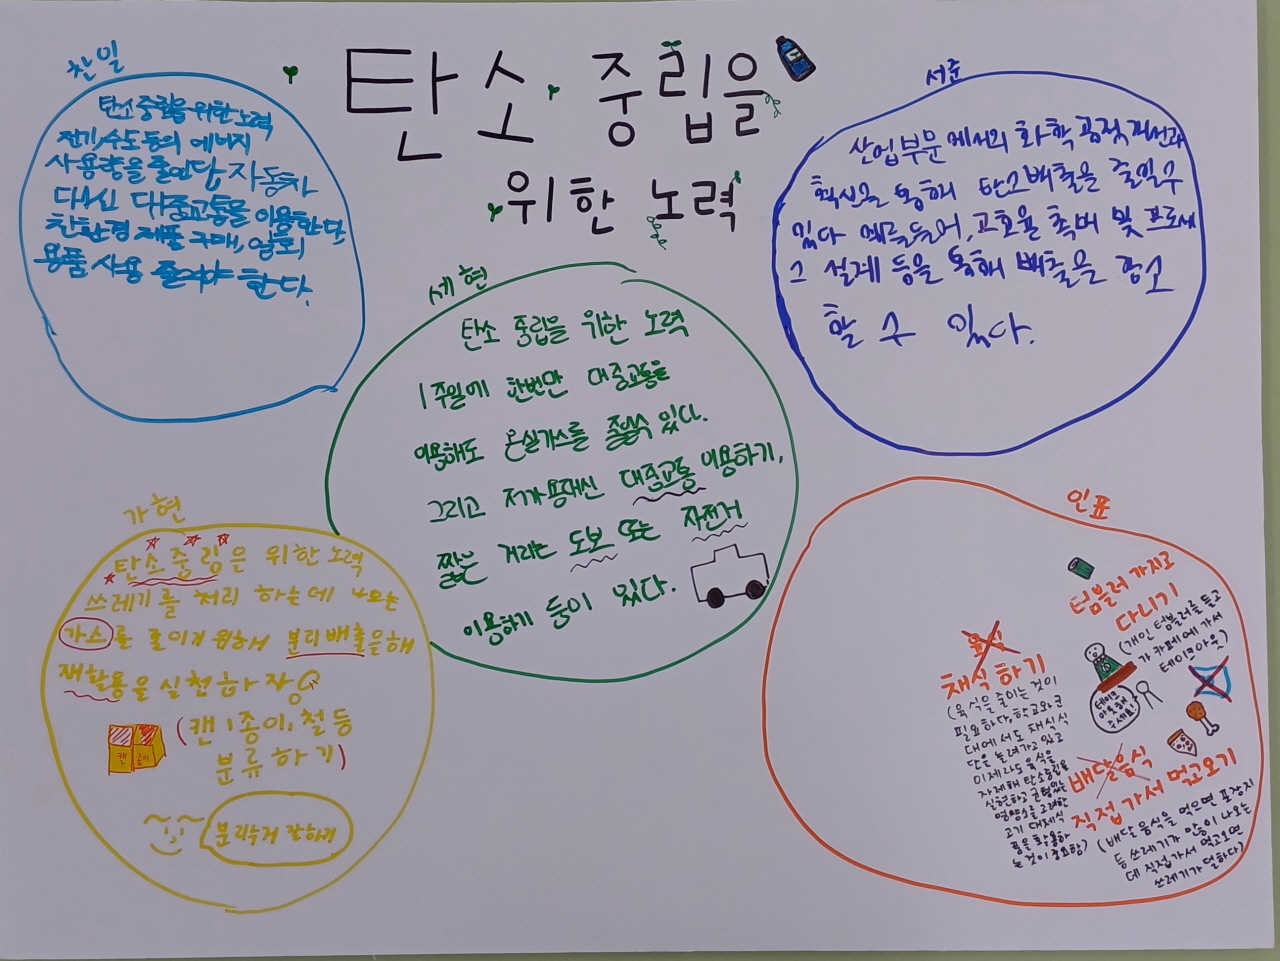 탄소 중립을
위한 노력
찬일
탄소중립을 위한 노력
전기,수도 등의 에너지
사용량을 줄인답, 자동차
대신 대중교통을 이용한단
친환경 제품 구매, 일회
용품 사용 줄여야 한다.
서준
산업부문에서의 화학 공정 개선과
혁신을 통해 탄소배출을 줄일수
있다 예를들어, 고효율 촉매 및 프로세
스 설계 등을 통해 배출을 감소
할 수 있다.
세현
탄소 중립을 위한 노력
1주일에 한번만 대중교통을
이용해도 온실가스를 줄일수 있다.
그리고 자가용대신 대중교통 이용하기,
짧은 거리는 도보 또는 자전거
이용하기 등이 있다.
가현
탄소중립을 위한 노력
쓰레기를 처리 하는데 나오는
가스를 줄이기 위해서 분리배출을해
재활용을 실천하자
(캔, 종이, 철 등
분류하기)
캔 종이
분리수거 잘하기
인표
텀블러 가지고
다니기
(개인 텀블러를 들고
가 카페에 가서
테이크아웃)
테이크
아웃해
주세요!
육식
채식하기
(육식을 줄이는 것이
필요하다, 학교와 군
대에서도 채식식
단을 늘려가고 있고
이제라도 육식을
자제해 탄소중립을
실현하고 균형있는
영양소를 고려한
고기 대체식
품을 활용하
는 것이 중요함)
배달음식
직접 가서 먹고오기
(배달음식을 먹으면 포장지
등 쓰레기가 많이 나오는
데 직접가서 먹고오면
쓰레기가 덜하다)